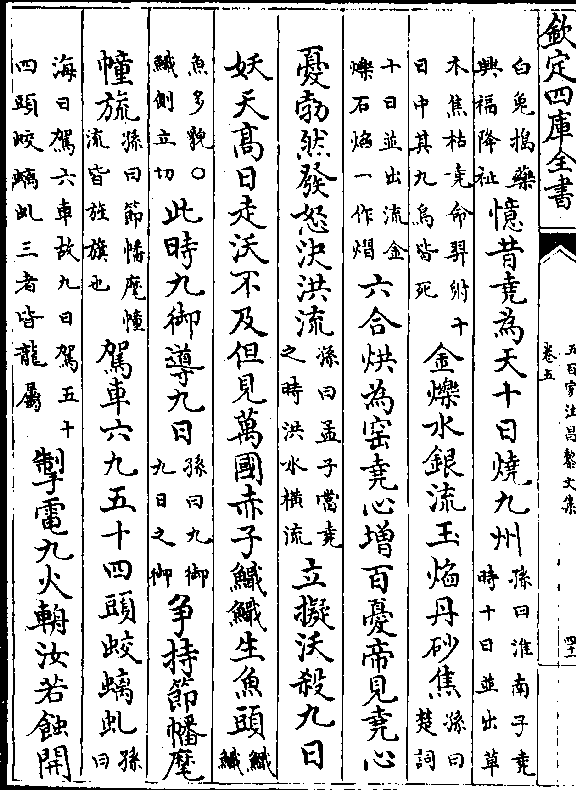 欽定四庫全書
五百家注昌黎文集
卷五
白兔搗藥
興福降祉
憶昔堯為天十日燒九州
孫曰淮南子堯
時十日並出草
木焦枯堯命羿射十
日中其九烏皆死
金爍水銀流玉熖丹砂焦
孫曰
楚詞
十日並出流金
爍石熖一作熠
六合烘為窑堯心增百憂帝見堯心
憂勃然發怒決洪流
孫曰孟子當堯
之時洪水橫流
立擬沃殺九日
妖天高日走沃不及但見萬國赤子生魚頭
魚多貌○
側立切
此時九御導九日
孫曰九御
九日之御
爭持節幡麾
幢旒
孫曰節幡麾幢
流皆旌旗也
駕車六九五十四頭蛟螭虬
孫
曰
海曰駕六車故九日駕五十
四頭蛟螭虬三者皆龍屬
掣電九火輈汝若蝕開